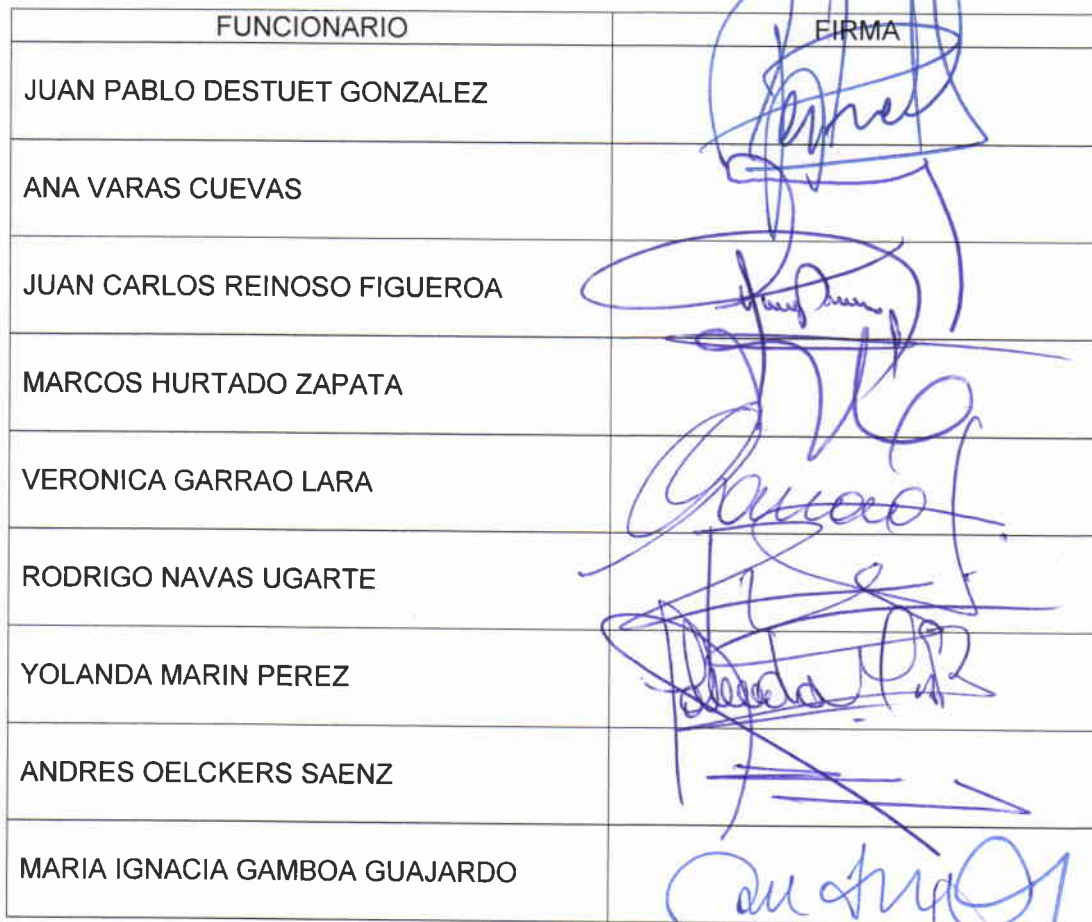 FUNCIONARIO FIRMA
JUAN PABLO DESTUET GONZALEZ
ANA VARAS CUEVAS
JUAN CARLOS REINOSO FIGUEROA
MARCOS HURTADO ZAPATA
VERONICA GARRAO LARA
RODRIGO NAVAS UGARTE
YOLANDA MARIN PEREZ
ANDRES OELCKERS SAENZ
MARIA IGNACIA GAMBOA GUAJARDO